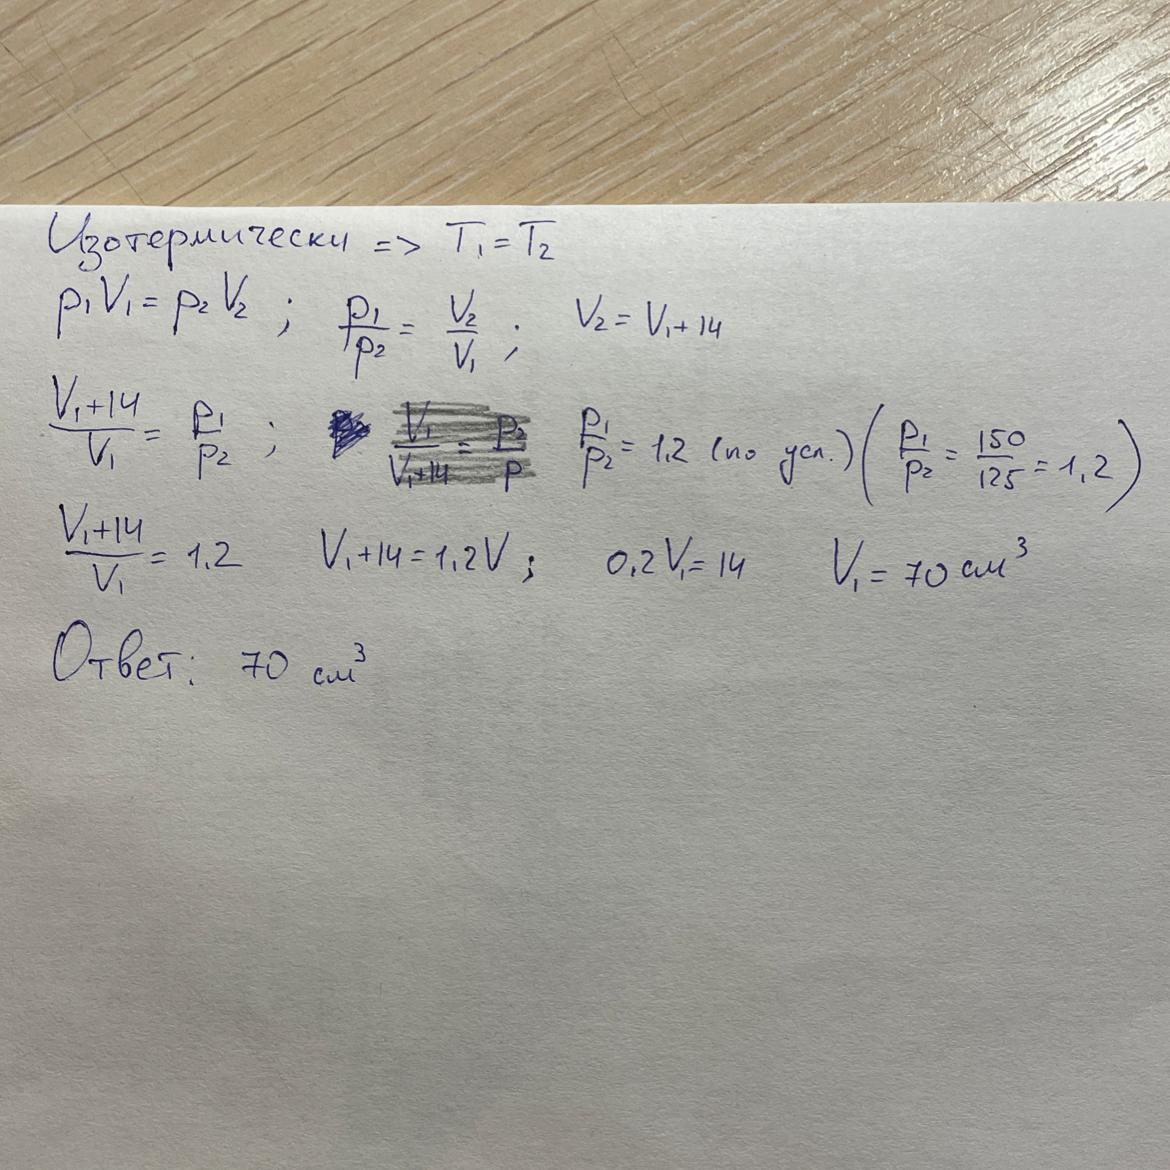 Изотермически => T₁ = T₂
p₁V₁ = p₂V₂ ; p₁/p₂ = V₂/V₁ ; V₂ = V₁ + 14
(V₁+14)/V₁ = p₁/p₂ ; V₁/(V₁+14) = p₂/p p₁/p₂ = 1,2 (по усл.) (p₁/p₂ = 150/125 = 1,2)
(V₁+14)/V₁ = 1,2 V₁+14 = 1,2V ; 0,2V₁ = 14 V₁ = 70 см³
Ответ: 70 см³